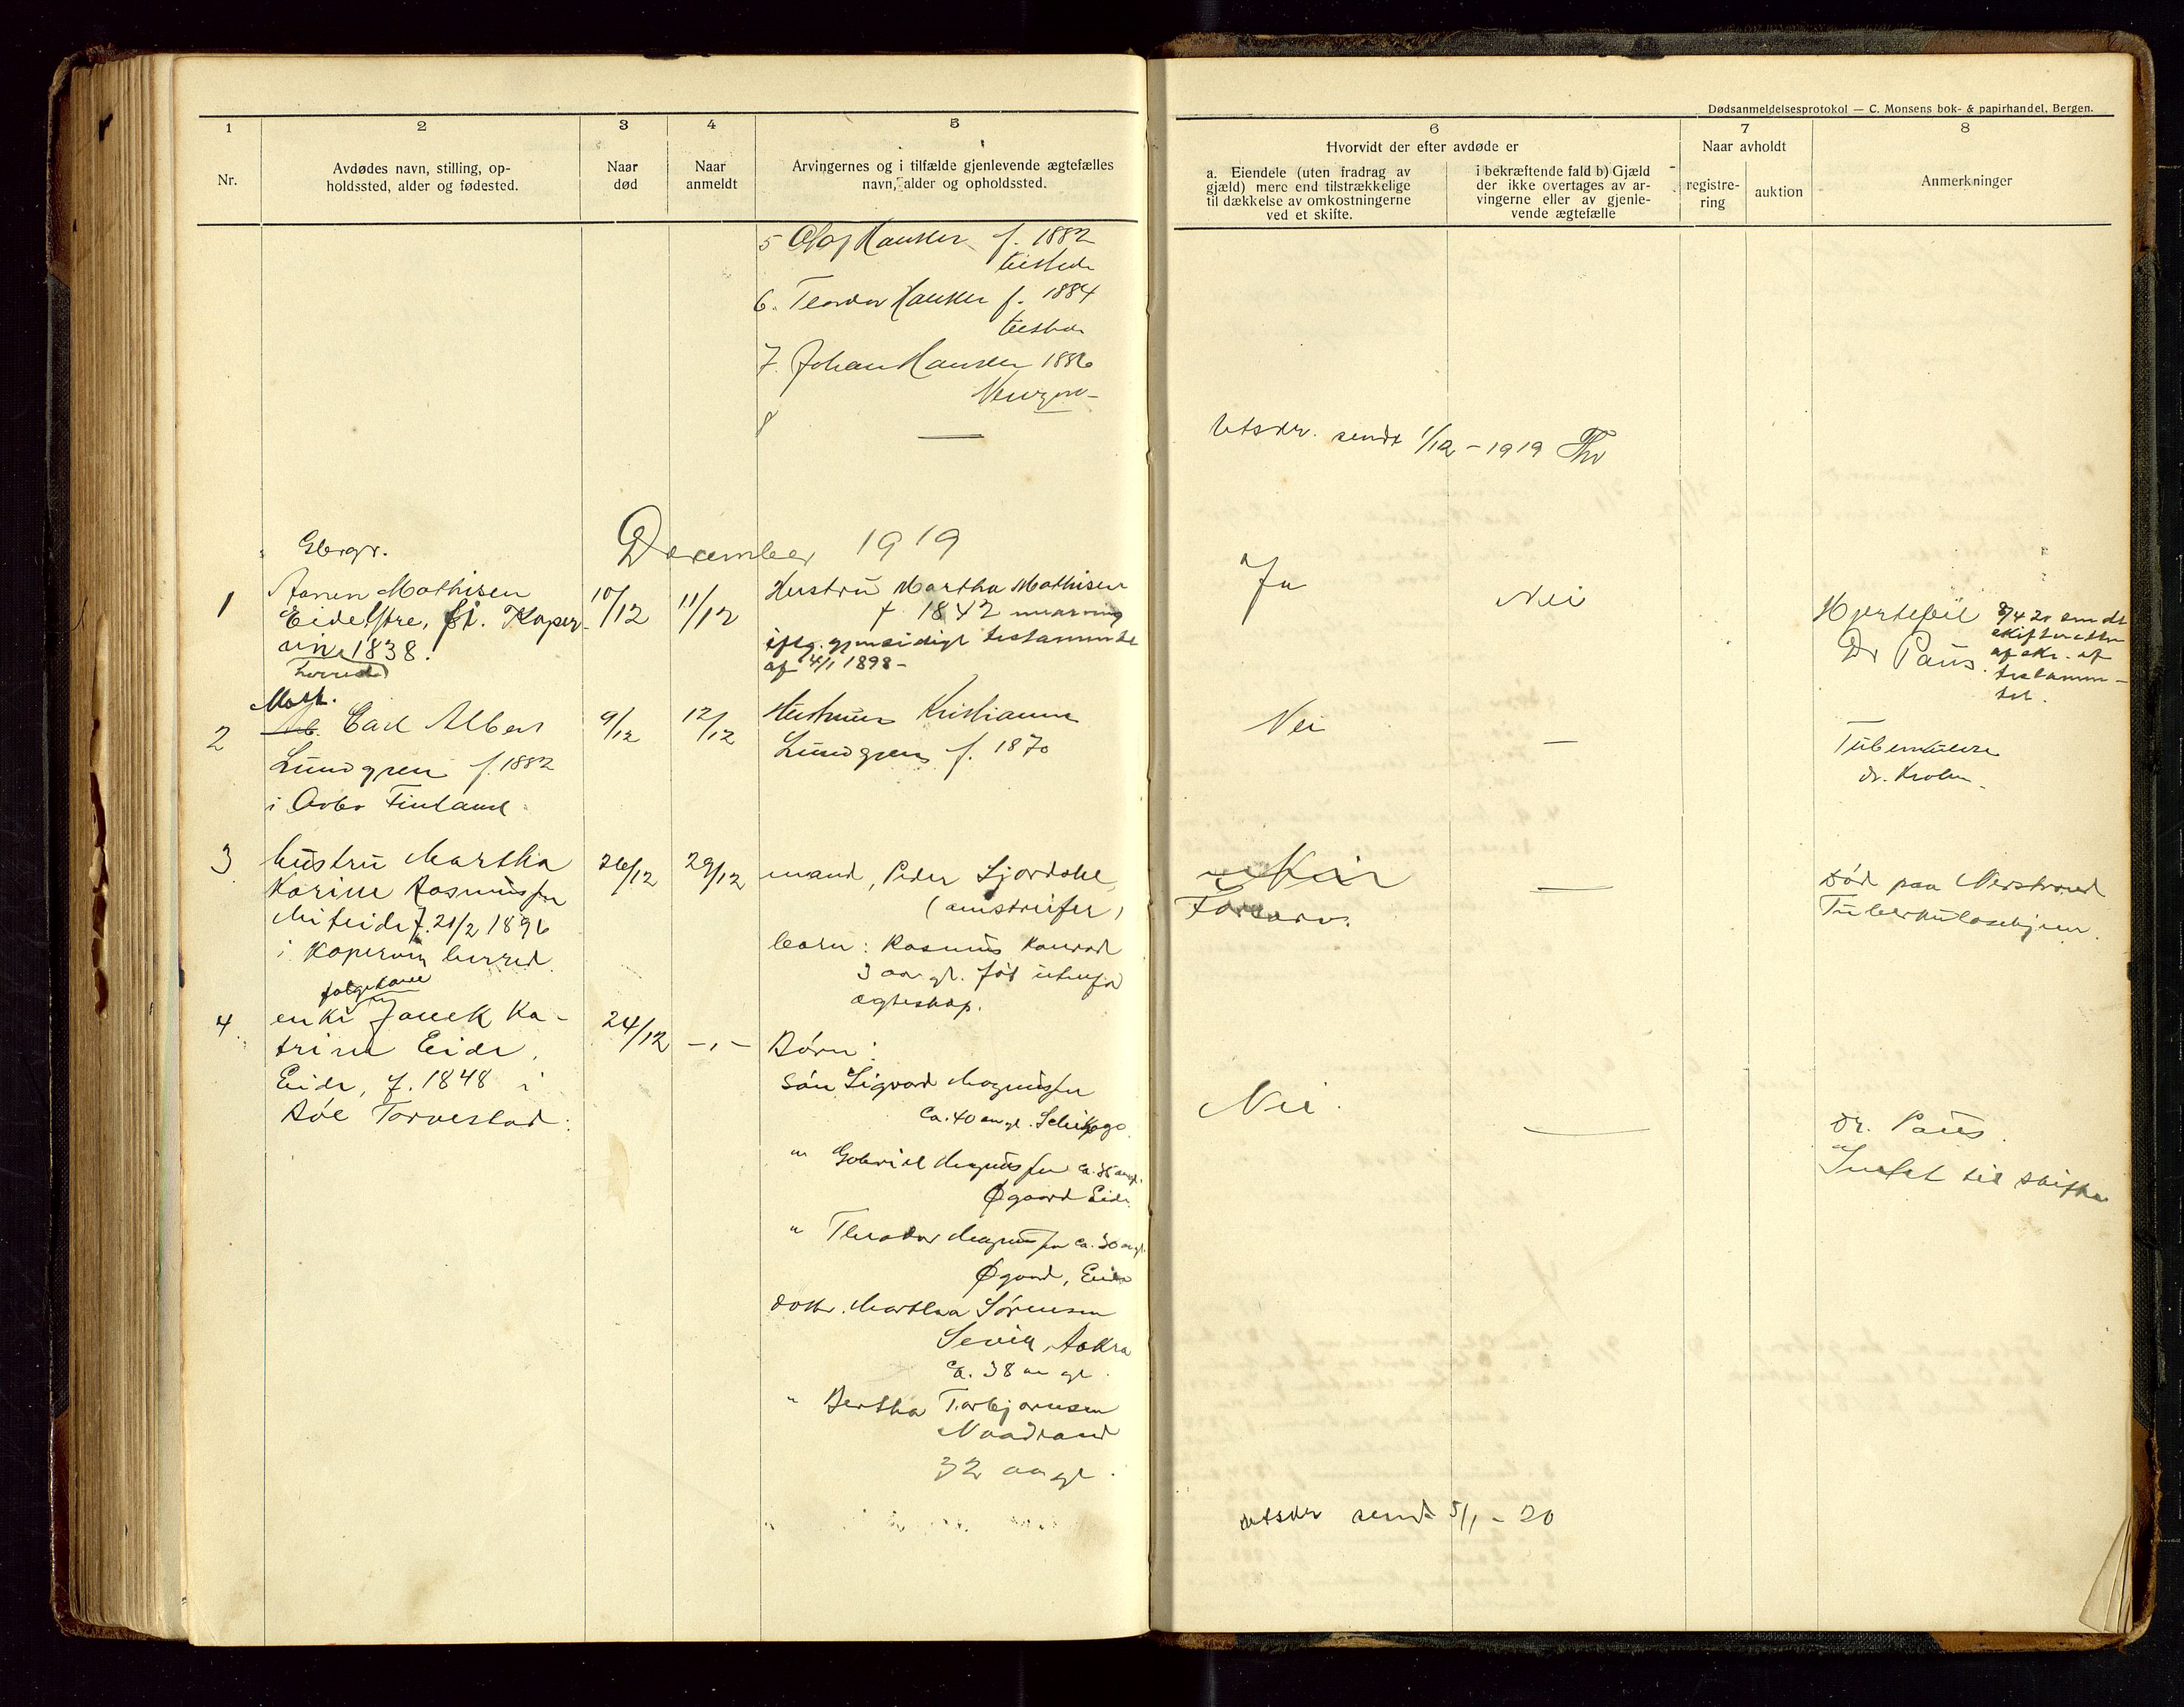 Dødsanmeldelsesprotokol — C. Monsens bok- & papirhandel, Bergen.
1
2
3
4
5
6
7
8
Nr.
Avdødes navn, stilling, op-
holdssted, alder og fødested.
Naar
død
Naar
anmeldt
Arvingernes og i tilfælde gjenlevende ægtefælles
navn, alder og opholdssted.
Hvorvidt der efter avdøde er
a. Eiendele (uten fradrag av
gjæld) mere end tilstrækkelige
til dækkelse av omkostningerne
ved et skifte.
i bekræftende fald b) Gjæld
der ikke overtages av ar-
vingerne eller av gjenle-
vende ægtefælle
Naar avholdt
registre-
ring
auktion
Anmerkninger
5 Olaf Hansen f. 1882
6. Teodor Hansen f. 1884
7. Johan Hansen 1886
8 —
Utskr. sendt 1/12 – 1919
December 1919
Gbrgr.
1
Mathisen
Eide, f. i. Koper-
vik 1838.
herred
10/12
11/12
Hustru Martha Mathisen
f. 1842
gjensidigt testamente
af 4/1 1898 –
Ja
Nei
Hjertefeil
Dr Paus
8/4 20 sendt
skifteretten
afskr. af
testamen-
tet.
2
Matr.
Carl Albert
Lundgren f. 1882
i Finland
9/12
12/12
Hustruen Kristianne
Lundgren f. 1870
Nei
—
Tuberkulose
dr.
3
hustru Martha
Karine Rasmussen
Miteide f. 21/2 1896
i Kopervik herred
26/12
29/12
mand, Peder
(omstreifer)
barn: Rasmus Konrad
3 aar gl. født utenfor
ægteskap.
Nei
—
død paa Nerstrand
Tuberkulosehjem.
4
enke Ka-
trine Eide,
Eide, f. 1848 i
Bøe Torvestad.
24/12
– " –
Børn:
søn Sigvard Magnussen
ca. 40 aar gl.
" Gabriel Magnussen ca. 35 aar gl.
Øgaard Eide
" Theodor Magnussen ca. 30 aar gl.
Øgaard, Eide
dotter. Martha Sørensen
Sevik, Aakra
ca. 38 aar gl.
" Bertha Torbjørnsen
32 aar gl.
Nei.
—
dr. Paus.
til skifte
utskr sendt 5/1 – 20